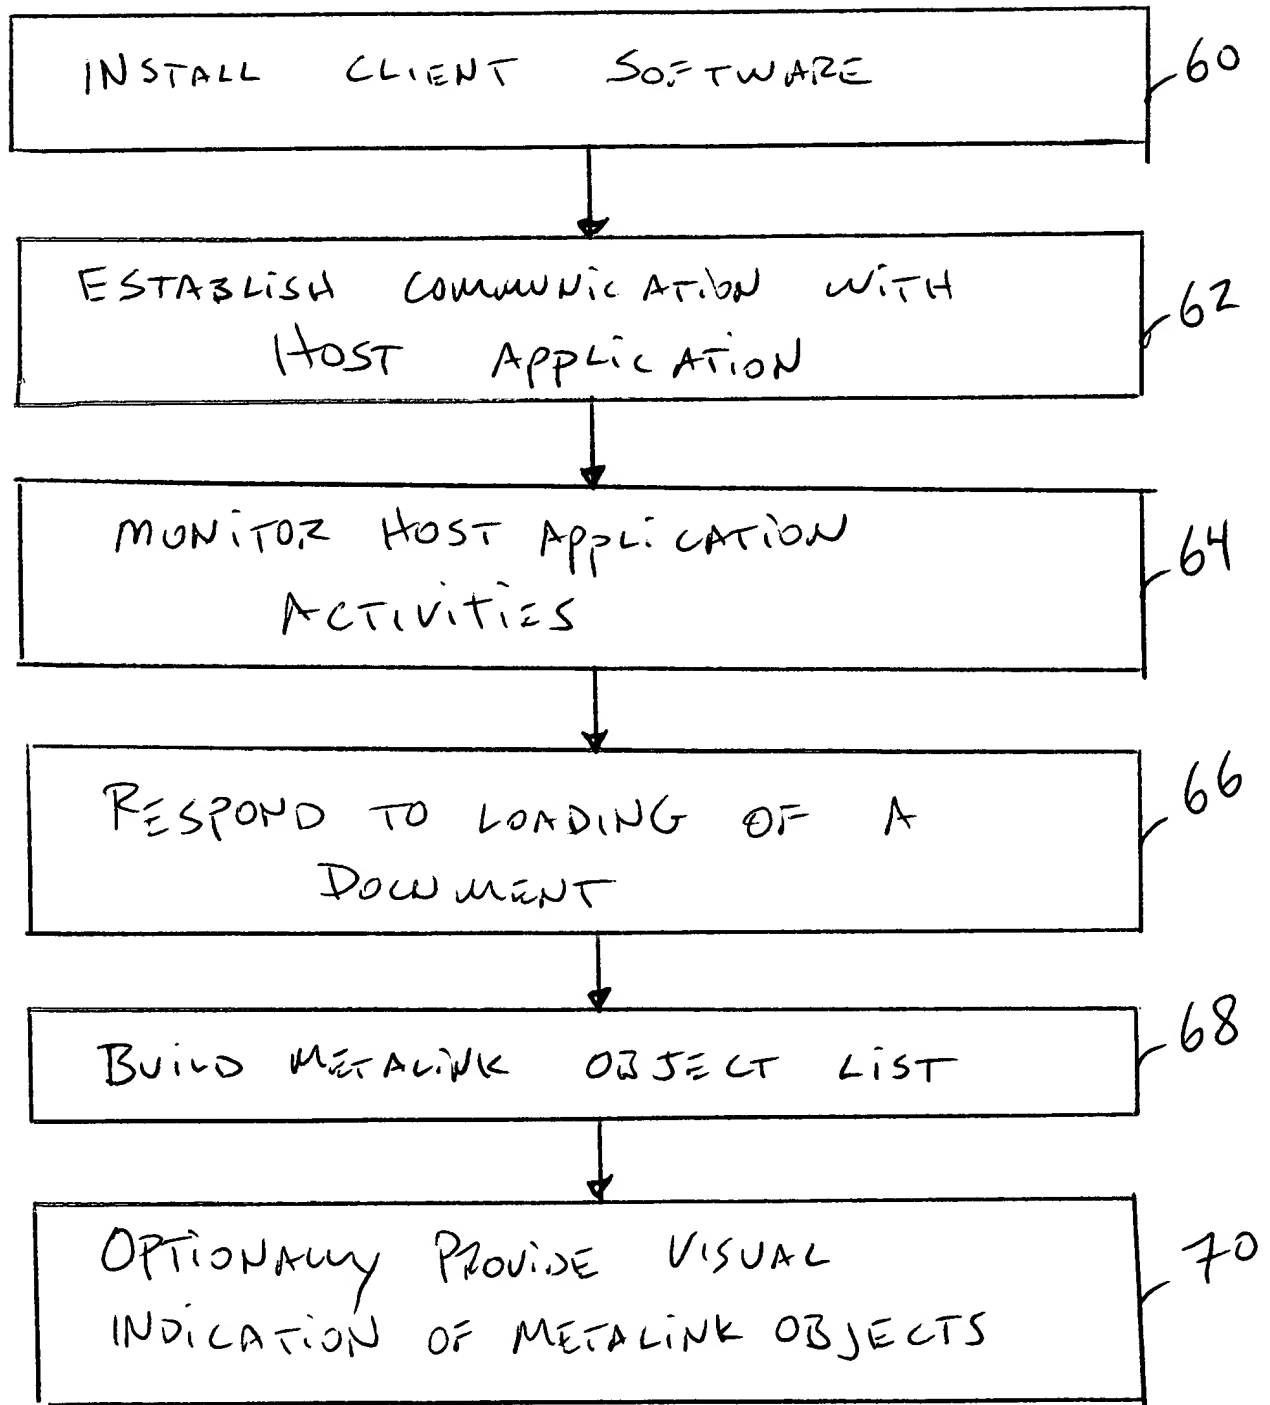 INSTALL CLIENT SOFTWARE
60
ESTABLISH COMMUNICATION WITH
HOST APPLICATION
62
MONITOR HOST APPLICATION
ACTIVITIES
64
RESPOND TO LOADING OF A
DOCUMENT
66
BUILD METALINK OBJECT LIST
68
OPTIONALLY PROVIDE VISUAL
INDICATION OF METALINK OBJECTS
70